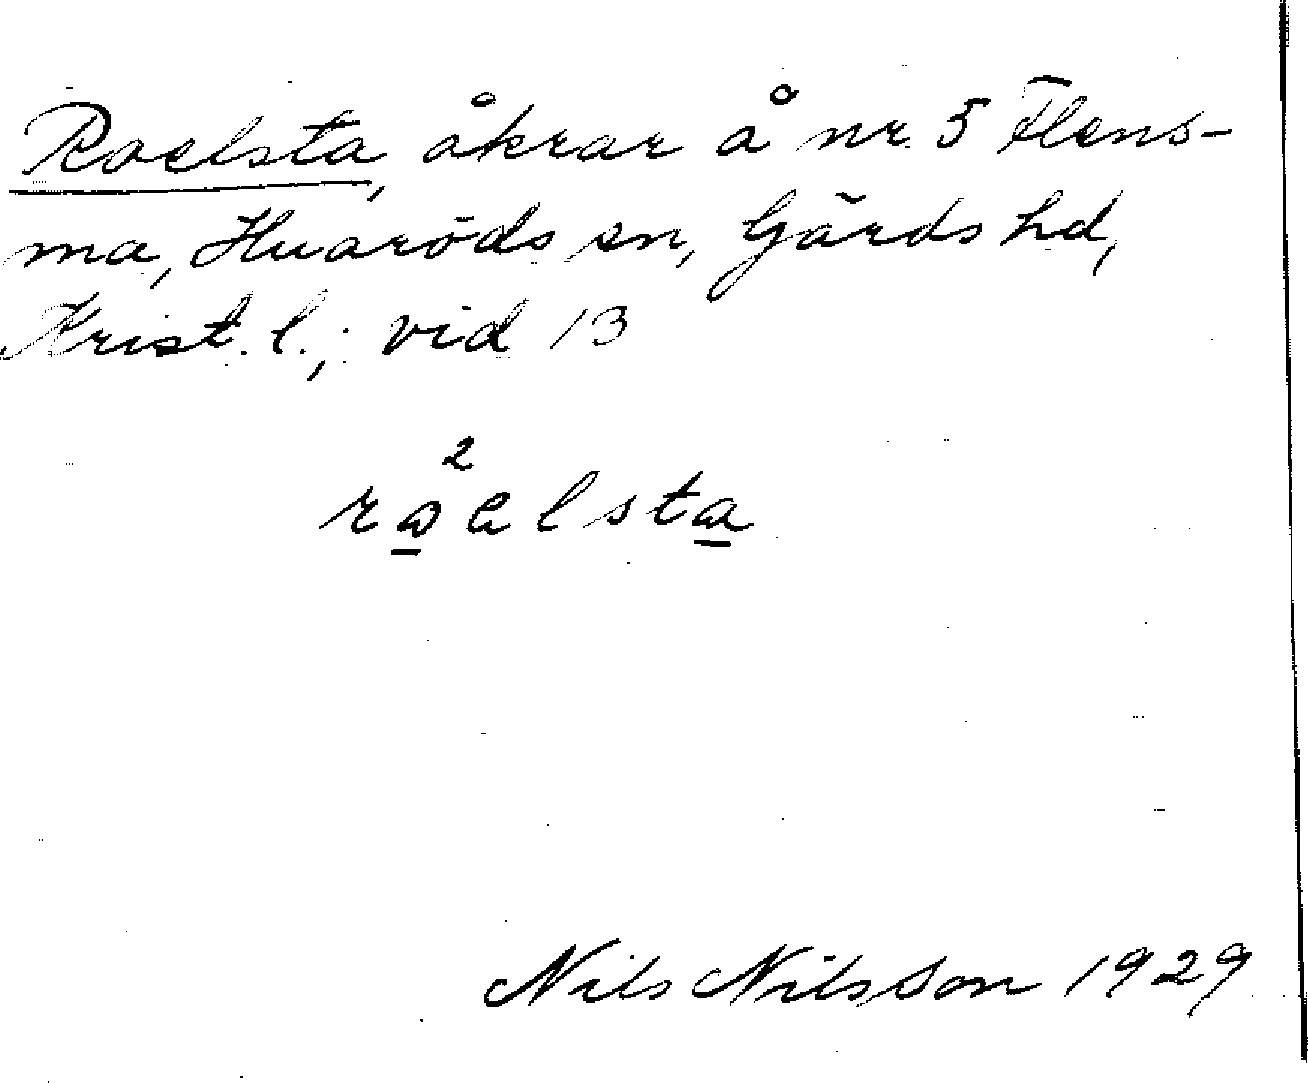 Roelsta, åkrar å nr. 5 Flens-
ma, Huaröds sn, Gärds hd,
Krist. l.; vid 13
2
roelsta
Nils Nilsson 1929